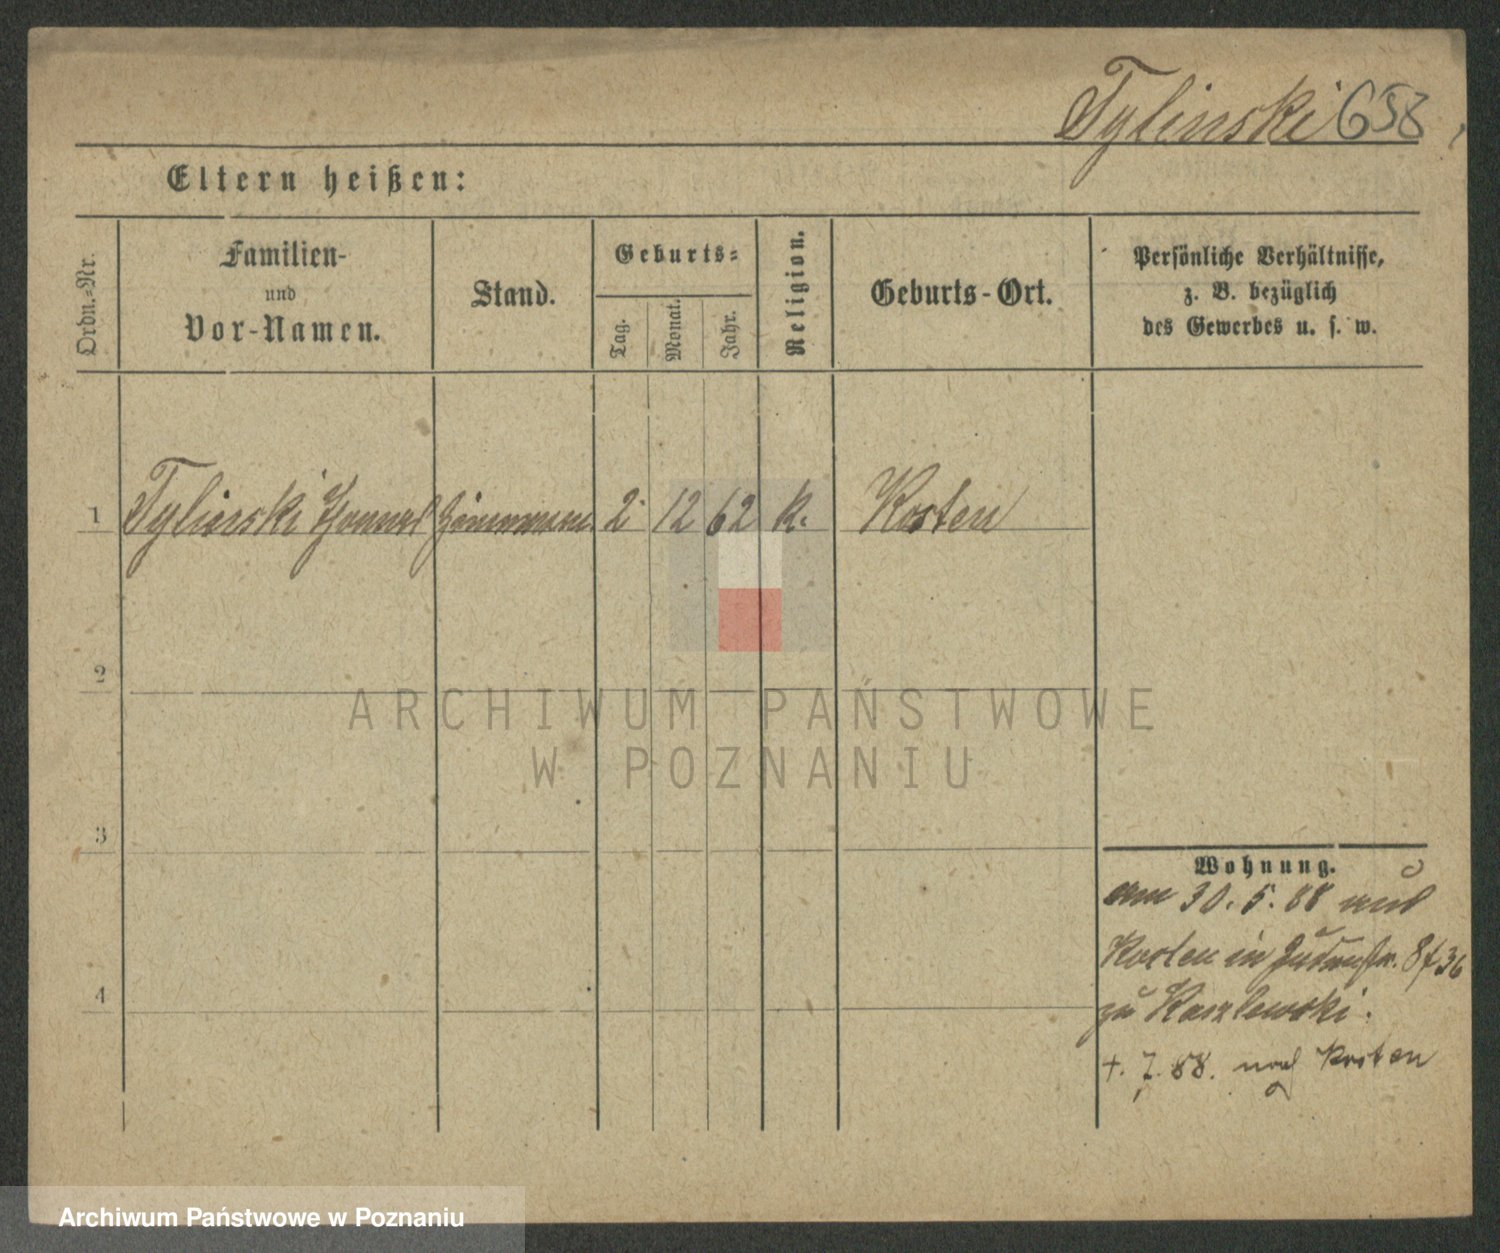 Tylinski 658
Eltern heißen:
Ordn.-Nr.
Familien-
und
Vor-Namen.
Stand.
Geburts-
Tag.
Monat.
Jahr.
Religion.
Geburts-Ort.
Persönliche Verhältnisse,
z. B. bezüglich
des Gewerbes u. s. w.
1 Tylinski 2 12 62 k. Kosten
2
3
4
Wohnung.
am 30. 5. 88 aus
Kosten in 36
zu Kaszlewski.
7. 88. nach Kosten
ARCHIWUM PAŃSTWOWE
W POZNANIU
Archiwum Państwowe w Poznaniu